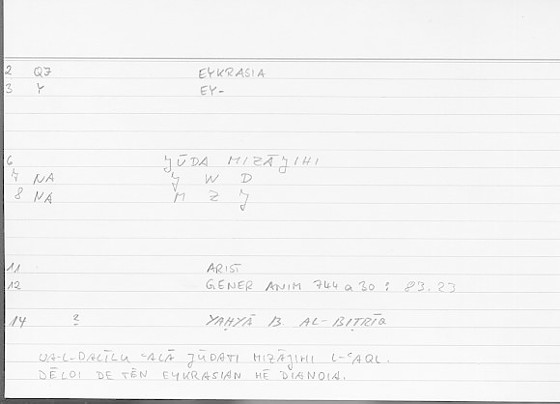 2 QJ EYKRASIA
3 Y EY-
6 ǦŪDA MIZĀǦIHI
7 NA Ǧ W D
8 NA M Z Ǧ
11 ARIST
12 GENER ANIM 744 a 30 : 83.23
14 2 YAḤYĀ B. AL-BIṬRĪQ
UA-L-DALĪLU ʿALĀ ǦŪDATI MIZĀǦIHI L-ʿAQL.
DĒLOI DE TĒN EYKRASIAN HĒ DIANOIA.